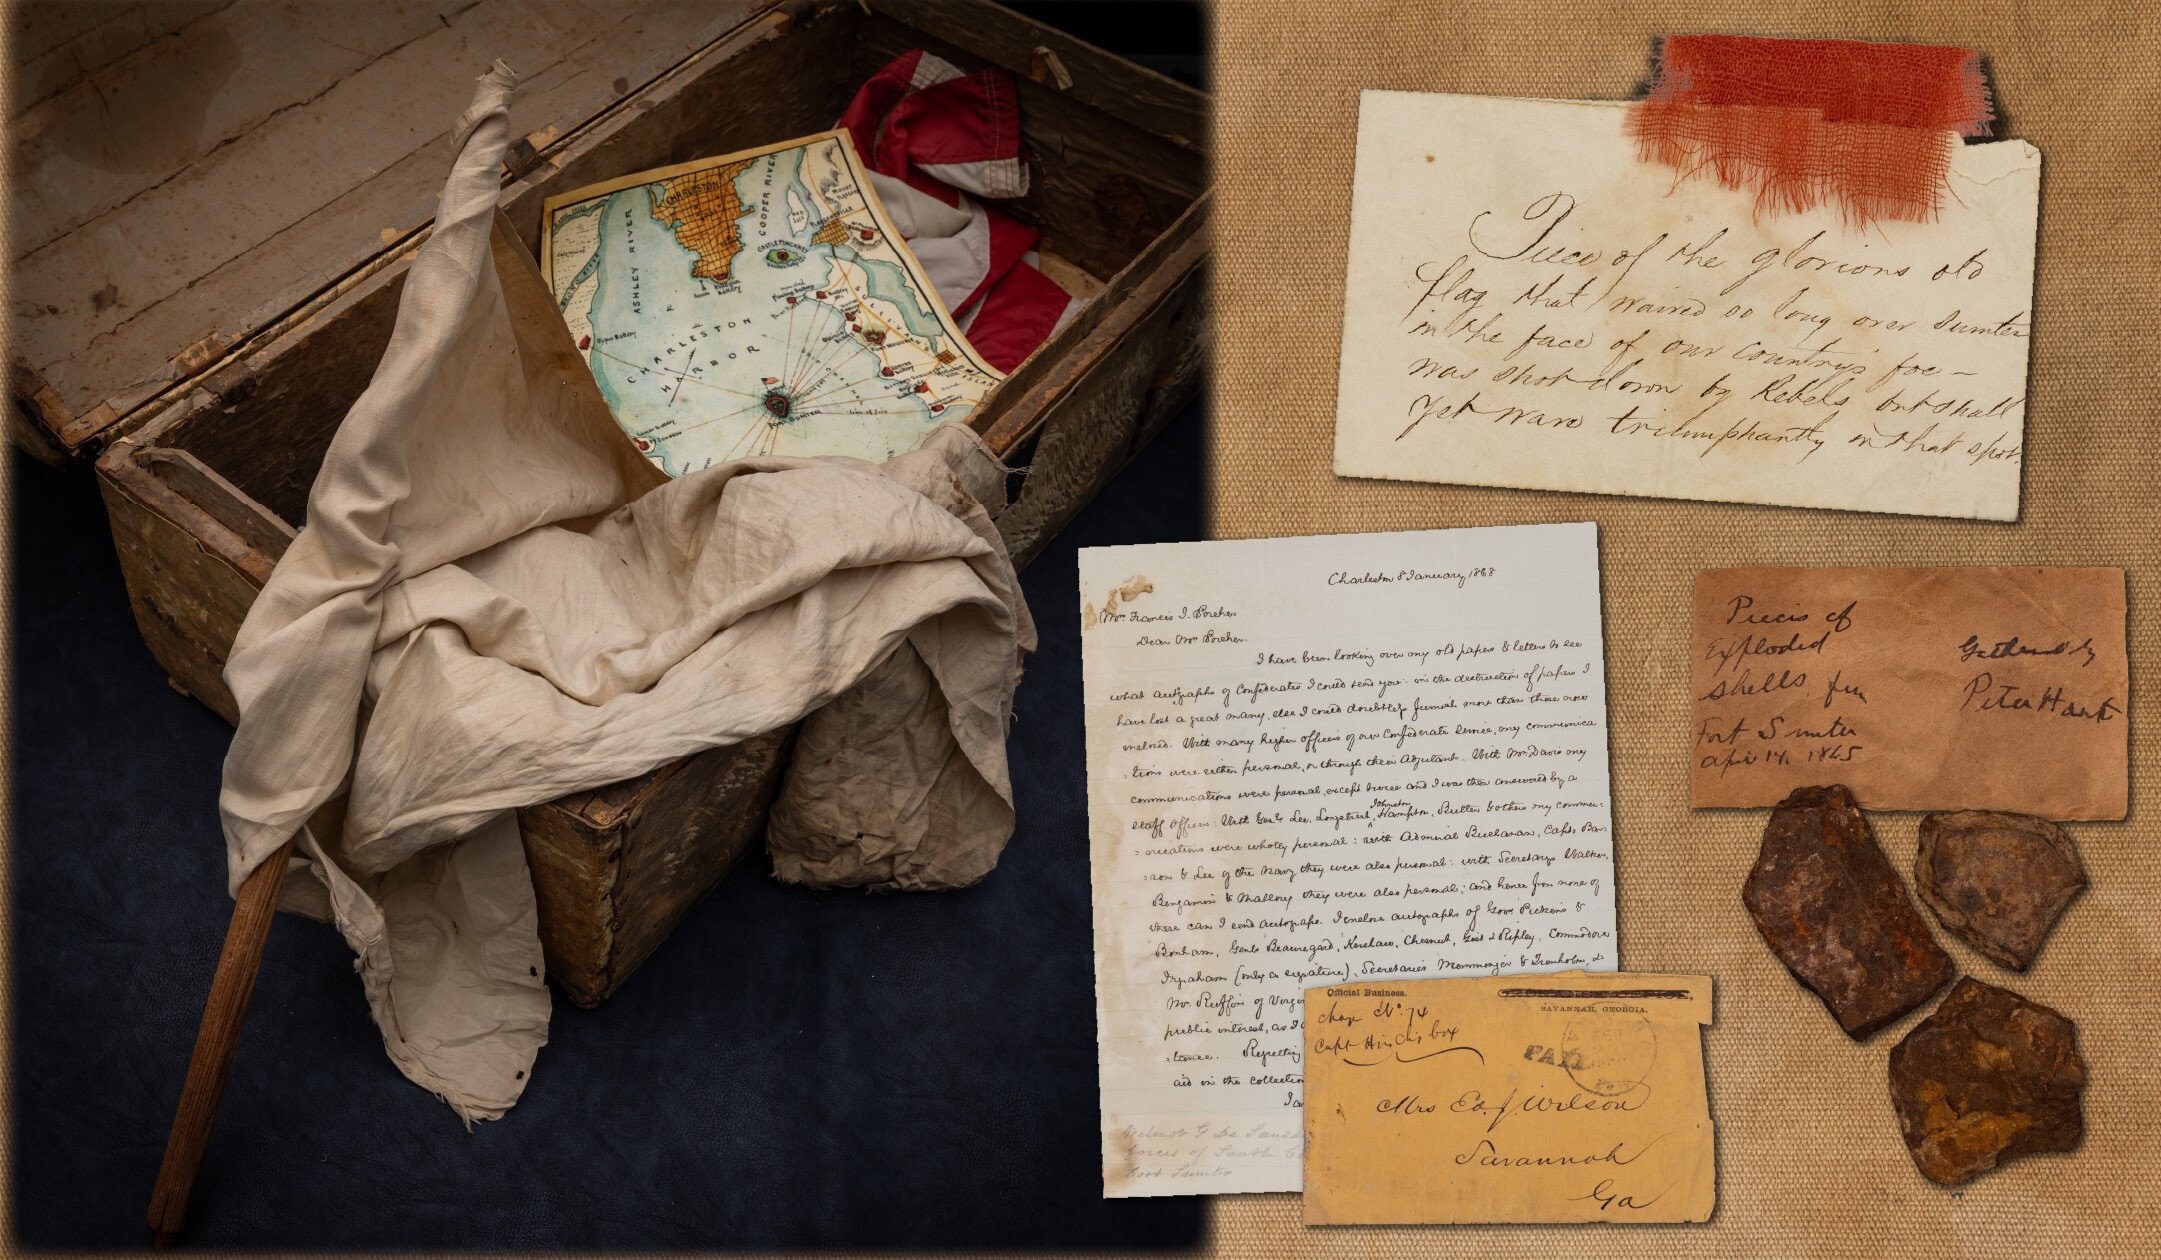 CHARLESTON
COOPER RIVER
ASHLEY RIVER
CASTLE PINCKNEY
CHARLESTON
HARBOR
SULLIVANS
ISLAND
FORT SUMTER
Piece of the glorious old
flag that waived so long over Sumter
in the face of our country's foe –
was shot down by Rebels but shall
yet wave triumphantly on that spot.
Charleston 8 January 1868
Mr. Francis J. Porcher
Dear Mr. Porcher.
I have been looking over my old papers & letters to see
what autographs of Confederates I could send you: in the destruction of papers I
have lost a great many, else I could doubtless furnish more than those now
enclosed. With many higher officers of our Confederate service, my communica
tions were either personal, or through their Adjutants. With Mr. Davis my
communications were personal except twice and I was then answered by a
staff officer: With Genls Lee, Longstreet, Johnston, Hampton, Butler & others my commu-
=nications were wholly personal: with Admiral Buchanan, Capts Bar-
=ron & Lee of the Navy they were also personal: with Secretarys Walker,
Benjamin & Mallory they were also personal; and hence from none of
these can I send autographs. I enclose autographs of Govs Pickens &
Bonham, Genls Beauregard, Kershaw, Chesnut, Gist & Ripley, Commodore
Ingraham (only a signature), Secretaries Memminger & Trenholm, &
Mr. Ruffin of Virgi
public interest, as I
=tance. Regretting
aid in the collection
I a
Wilmot G De Sauss
forces of South Ca
Fort Sumter
Official Business.
SAVANNAH, GEORGIA.
Chge No. 74
Capt box
PAID
Mrs Ed. J Wilson
Savannah
Ga
Piecis of
Exploded
Shells from
Fort Sumter
April 14, 1865
Gathered by
Peter Hawk